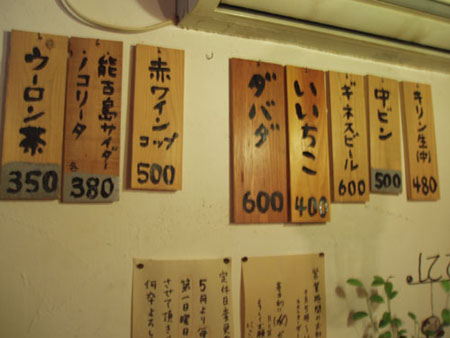 キリン生(中)
480
中ビン
500
ギネスビール
600
いいちこ
400
ダバダ
600
赤ワイン
コップ
500
能古島サイダー
ノコリータ
各380
ウーロン茶
350
営業時間のお知
定休日変更
5月より毎
第一日曜日
させて頂き
何卒よろし